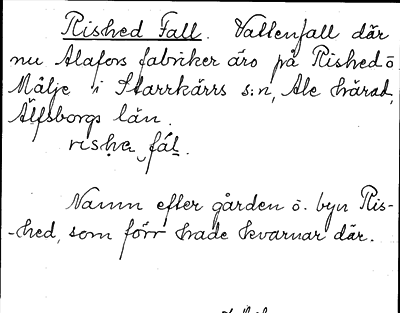 Rished Fall. Vattenfall där
nu Alafors fabriker äro på Rished ō
Målje i Starrkärrs s:n, Ale härad,
Älfsborgs län.
rishe fál.
Namn efter gården o. byn Ris-
-hed, som förr hade kvarnar där.